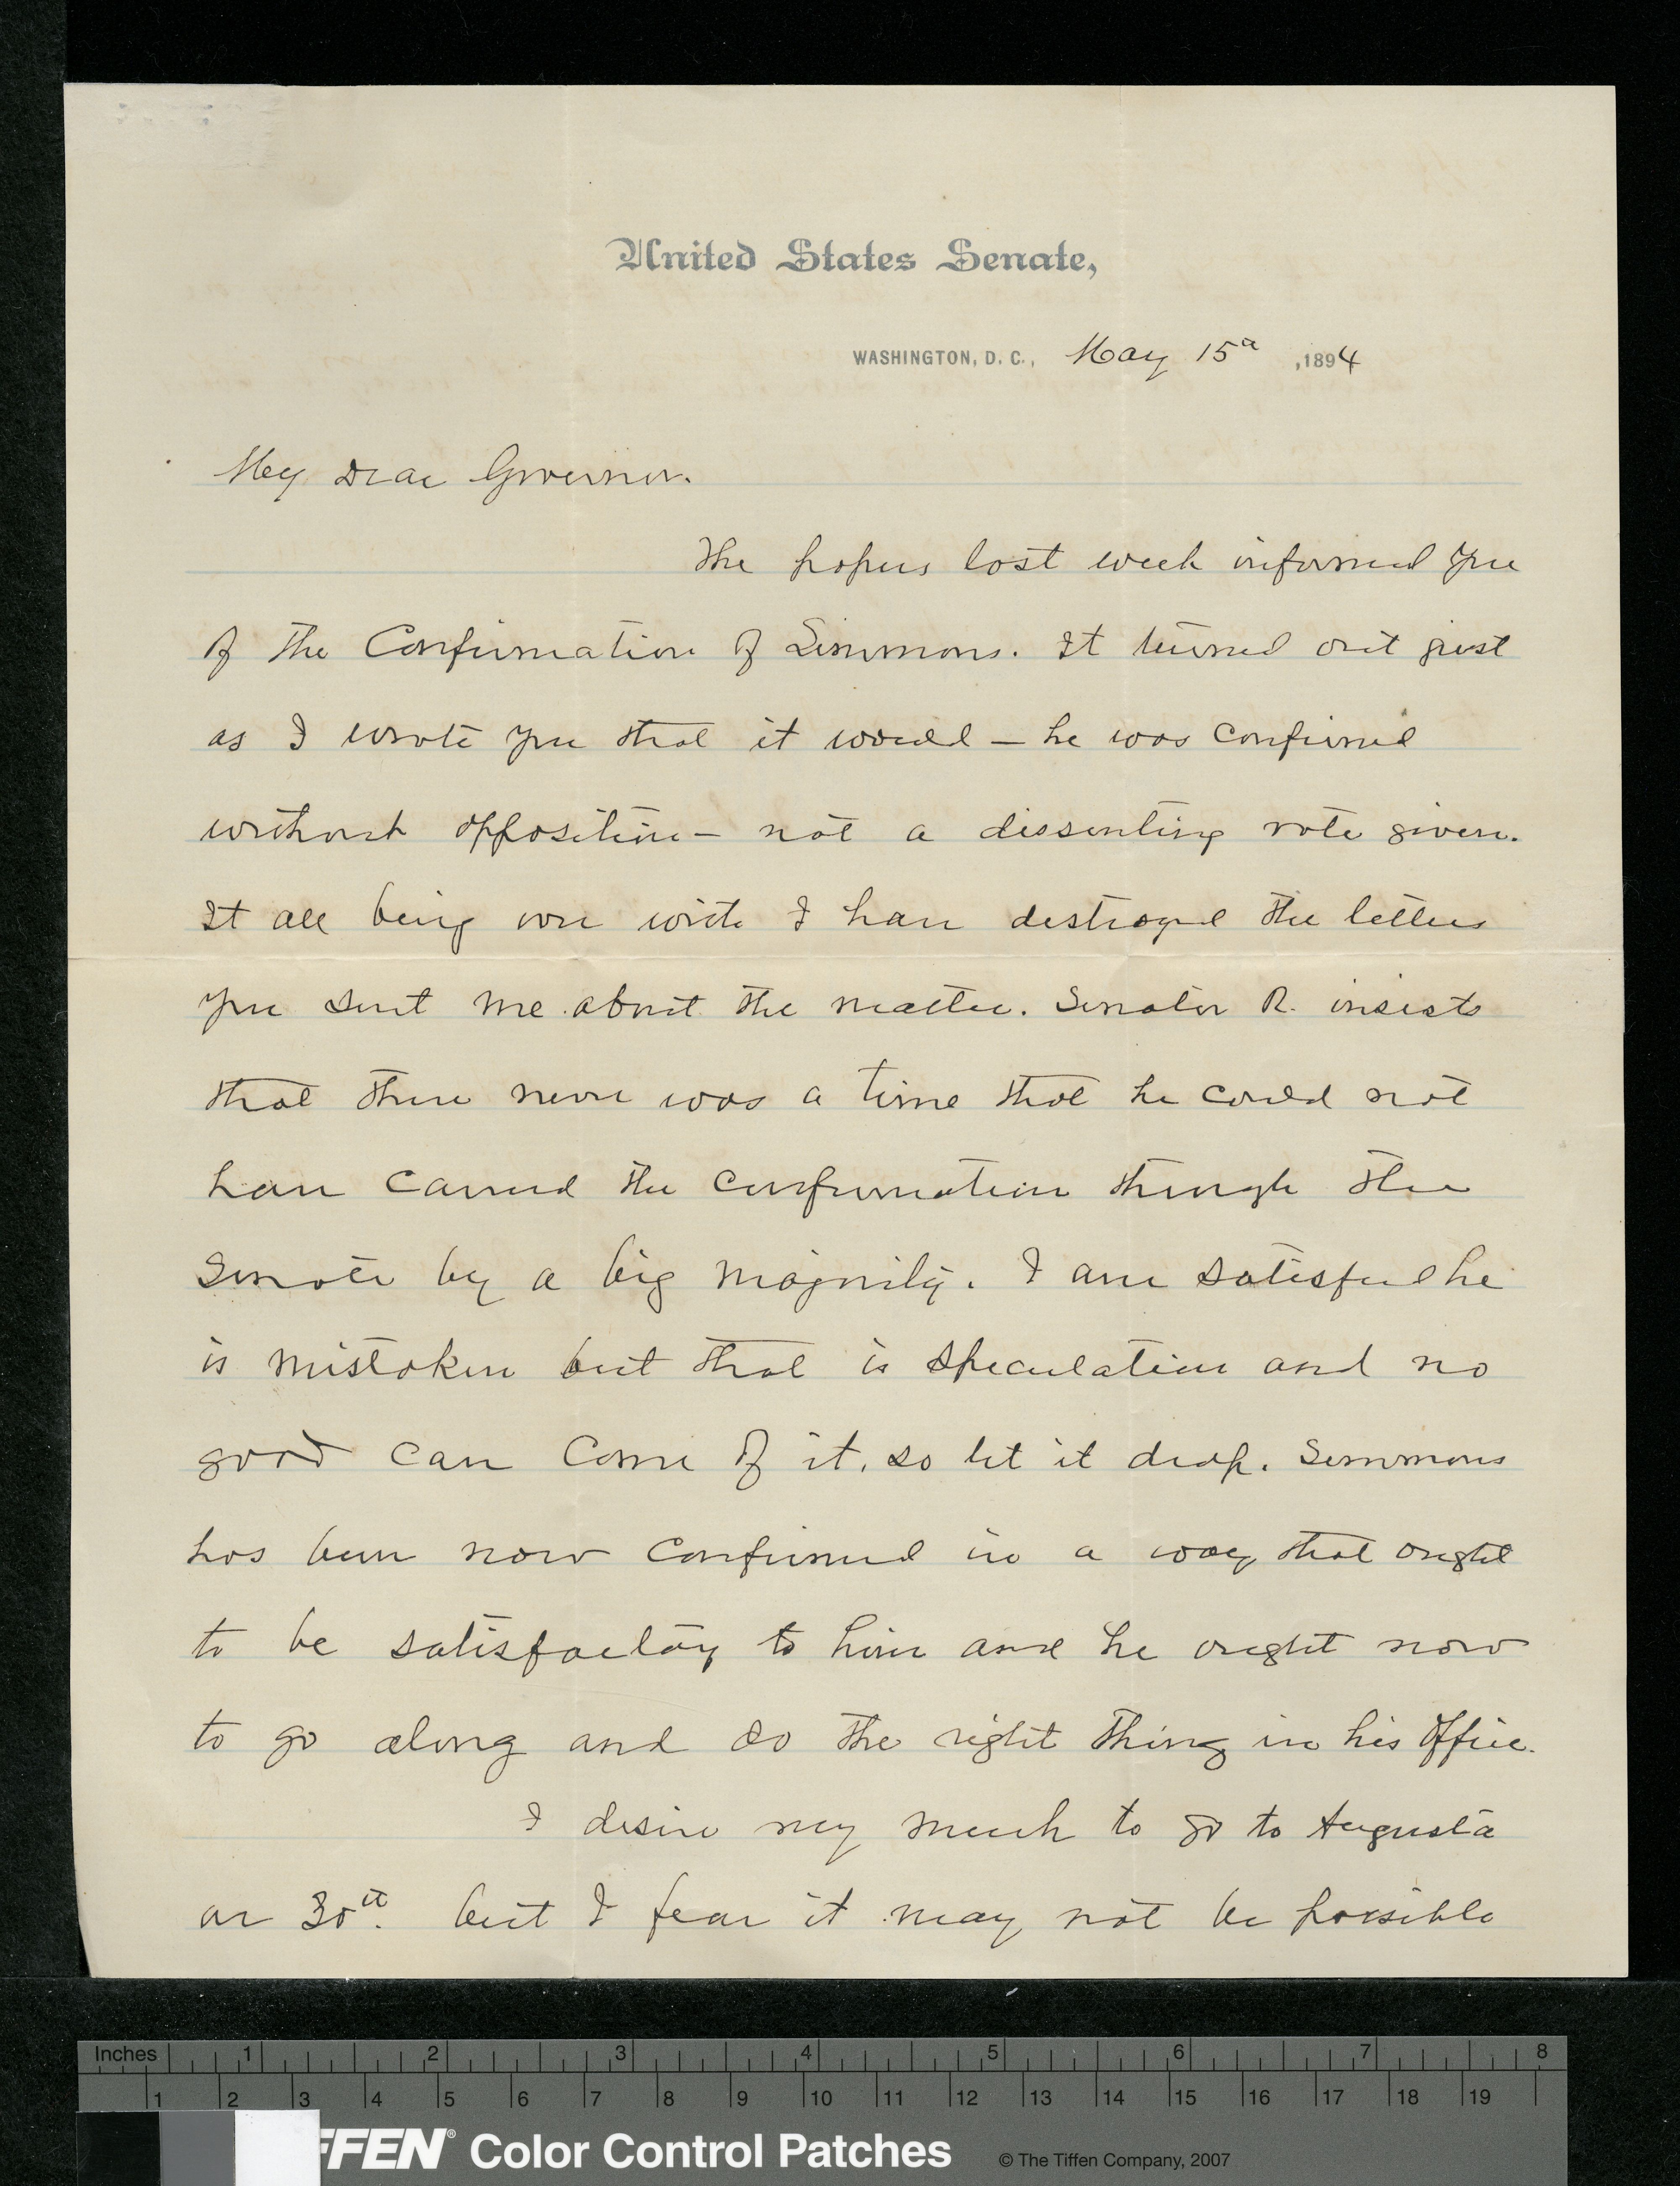 United States Senate,
WASHINGTON, D. C., May 15th, 1894
My Dear Governor.
The papers last week informed you
of the Confirmation of Simmons. It turned out just
as I wrote you that it would — he was confirmed
without opposition — not a dissenting vote given.
It all being over with I have destroyed the letters
you sent me about the matter. Senator R. insists
that there never was a time that he could not
have carried the confirmation through the
Senate by a big majority. I am satisfied he
is mistaken but that is speculation and no
good can come of it, so let it drop. Simmons
has been now confirmed in a way that ought
to be satisfactory to him and he ought now
to go along and do the right thing in his office.
I desire very much to go to Augusta
on 30th. but I fear it may not be possible
Inches 1 2 3 4 5 6 7 8
1 2 3 4 5 6 7 8 9 10 11 12 13 14 15 16 17 18 19
FFEN® Color Control Patches © The Tiffen Company, 2007